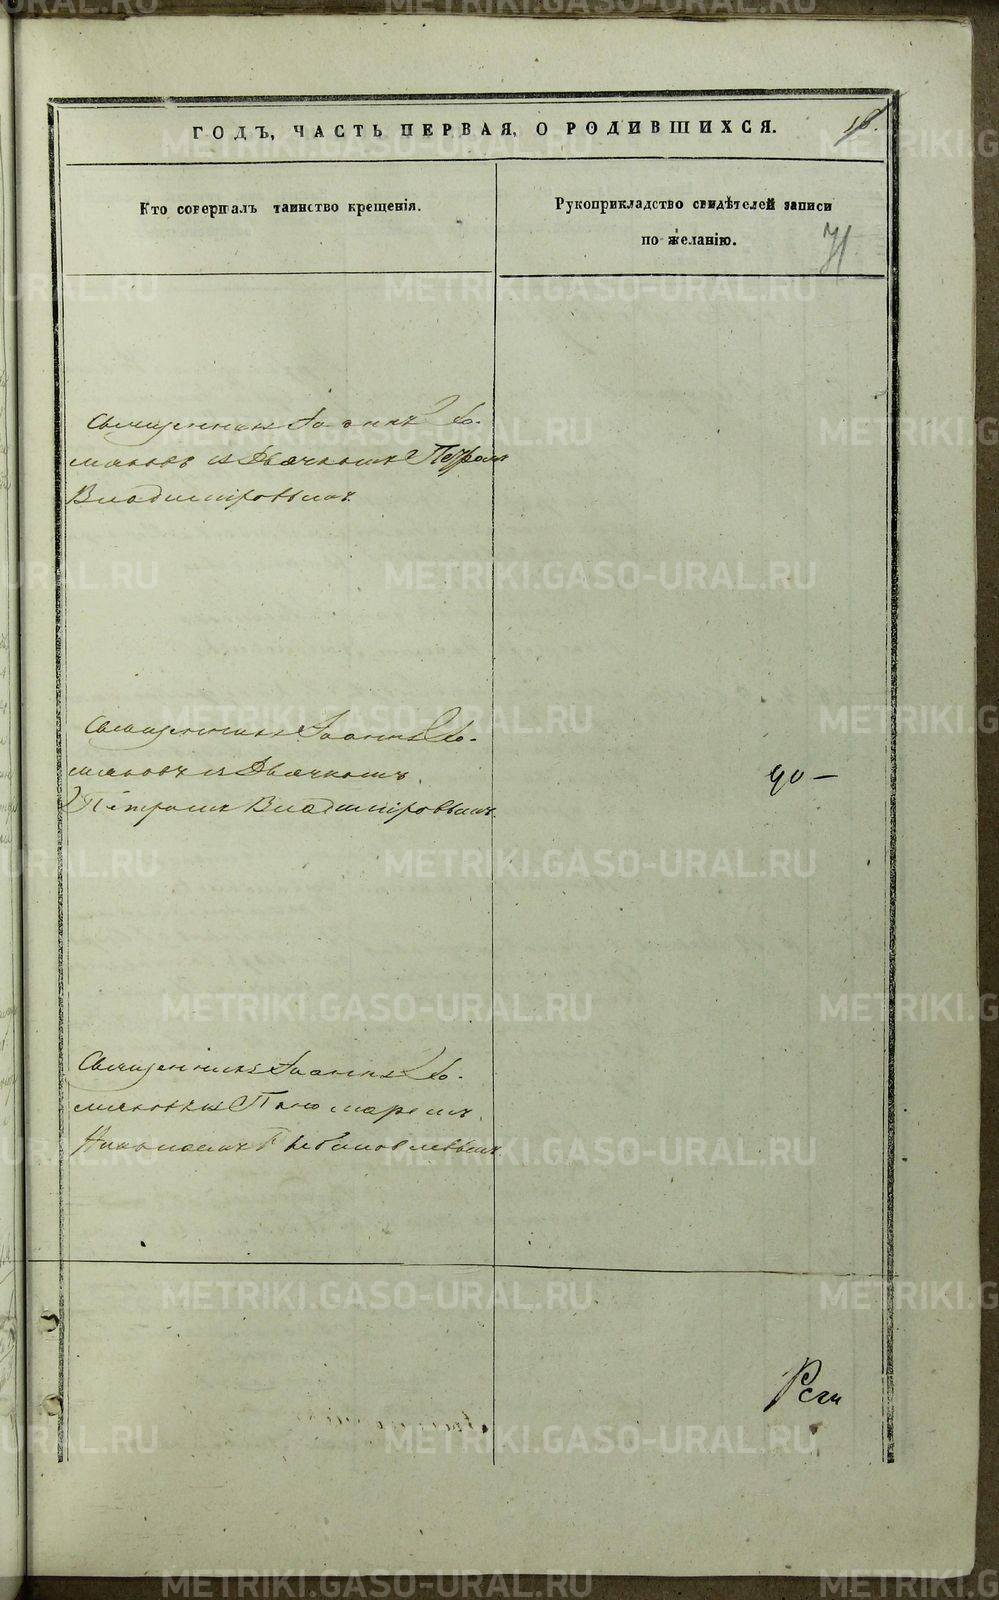 ГОДЪ, ЧАСТЬ ПЕРВАЯ, О РОДИВШИХСЯ.
Кто совершалъ таинство крещенія.
Рукоприкладство свидѣтелей записи
по желанію.
71
Священникъ Іоаннъ Хо-
мяковъ съ Дьячкомъ Петромъ
Владиміровымъ
Священникъ Іоаннъ Хо-
мяковъ съ Дьячкомъ
Петромъ Владиміровымъ.
90 —
Священникъ Іоаннъ Хо-
мяковъ съ Пономаремъ
METRIKI.GASO-URAL.RU